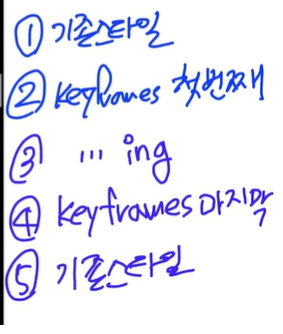 ① 기존스타일
② keyframes 첫번째
③ ... ing
④ keyframes 마지막
⑤ 기존스타일